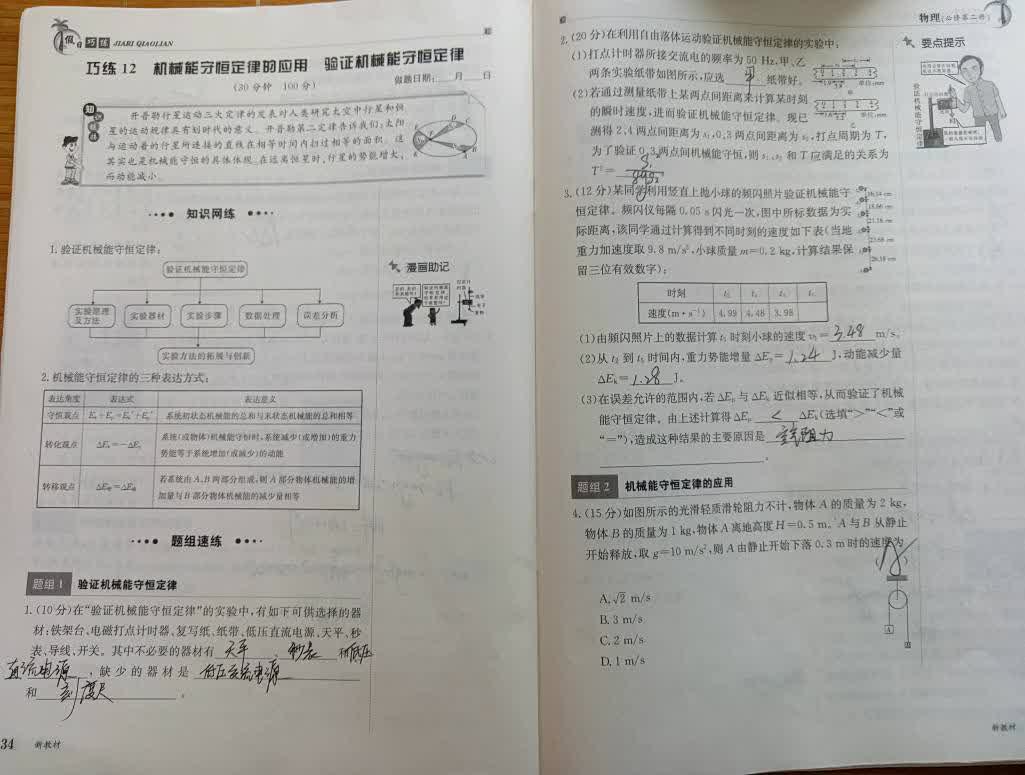 假日巧练 JIARI QIAOLIAN
巧练 12 机械能守恒定律的应用 验证机械能守恒定律
(30分钟 100分)
做题日期: 月 日
开普勒行星运动三大定律的发表对人类研究太空中行星和恒
星的运动规律具有划时代的意义。开普勒第二定律告诉我们:太阳
与运动着的行星所连接的直线在相等时间内扫过相等的面积。这
其实也是机械能守恒的具体体现。在远离恒星时,行星的势能增大,
而动能减小。
知识网练
1.验证机械能守恒定律:
验证机械能守恒定律
实验原理及方法
实验器材
实验步骤
数据处理
误差分析
实验方法的拓展与创新
漫画助记
2.机械能守恒定律的三种表达方式:
表达角度 表达式 表达意义
守恒观点 Eₖ+Eₚ=Eₖ'+Eₚ' 系统初状态机械能的总和与末状态机械能的总和相等
转化观点 ΔEₖ=-ΔEₚ 系统(或物体)机械能守恒时,系统减少(或增加)的重力
势能等于系统增加(或减少)的动能
转移观点 ΔE增=ΔE减 若系统由A、B两部分组成,则A部分物体机械能的增
加量与B部分物体机械能的减少量相等
题组速练
题组1 验证机械能守恒定律
1.(10分)在“验证机械能守恒定律”的实验中,有如下可供选择的器
材:铁架台、电磁打点计时器、复写纸、纸带、低压直流电源、天平、秒
表、导线、开关。其中不必要的器材有 天平 、 秒表 和低压
直流电源 ,缺少的器材是 低压交流电源
和 刻度尺 。
34 新教材
物理(必修第二册)
2.(20分)在利用自由落体运动验证机械能守恒定律的实验中:
(1)打点计时器所接交流电的频率为50 Hz,甲、乙
两条实验纸带如图所示,应选 甲 纸带好。
(2)若通过测量纸带上某两点间距离来计算某时刻
的瞬时速度,进而验证机械能守恒定律。现已
测得2、4两点间距离为s₁,0、3两点间距离为s₂,打点周期为T,
为了验证0、3两点间机械能守恒,则s₁、s₂和T应满足的关系为
T²=
要点提示
验证机械能守恒定律
3.(12分)某同学利用竖直上抛小球的频闪照片验证机械能守
恒定律。频闪仪每隔0.05 s闪光一次,图中所标数据为实
际距离,该同学通过计算得到不同时刻的速度如下表(当地
重力加速度取9.8 m/s²,小球质量m=0.2 kg,计算结果保
留三位有效数字):
时刻 t₂ t₃ t₄ t₅
速度(m·s⁻¹) 4.99 4.48 3.98
(1)由频闪照片上的数据计算t₅时刻小球的速度v₅= 3.48 m/s。
(2)从t₂到t₅时间内,重力势能增量ΔEₚ= 1.24 J,动能减少量
ΔEₖ= 1.28 J。
(3)在误差允许的范围内,若ΔEₚ与ΔEₖ近似相等,从而验证了机械
能守恒定律。由上述计算得ΔEₚ < ΔEₖ(选填“>”“<”或
“=”),造成这种结果的主要原因是 空气阻力
。
题组2 机械能守恒定律的应用
4.(15分)如图所示的光滑轻质滑轮阻力不计,物体A的质量为2 kg,
物体B的质量为1 kg,物体A离地高度H=0.5 m。A与B从静止
开始释放,取g=10 m/s²,则A由静止开始下落0.3 m时的速度为
( A )
A.√2 m/s
B.3 m/s
C.2 m/s
D.1 m/s
A
新教材